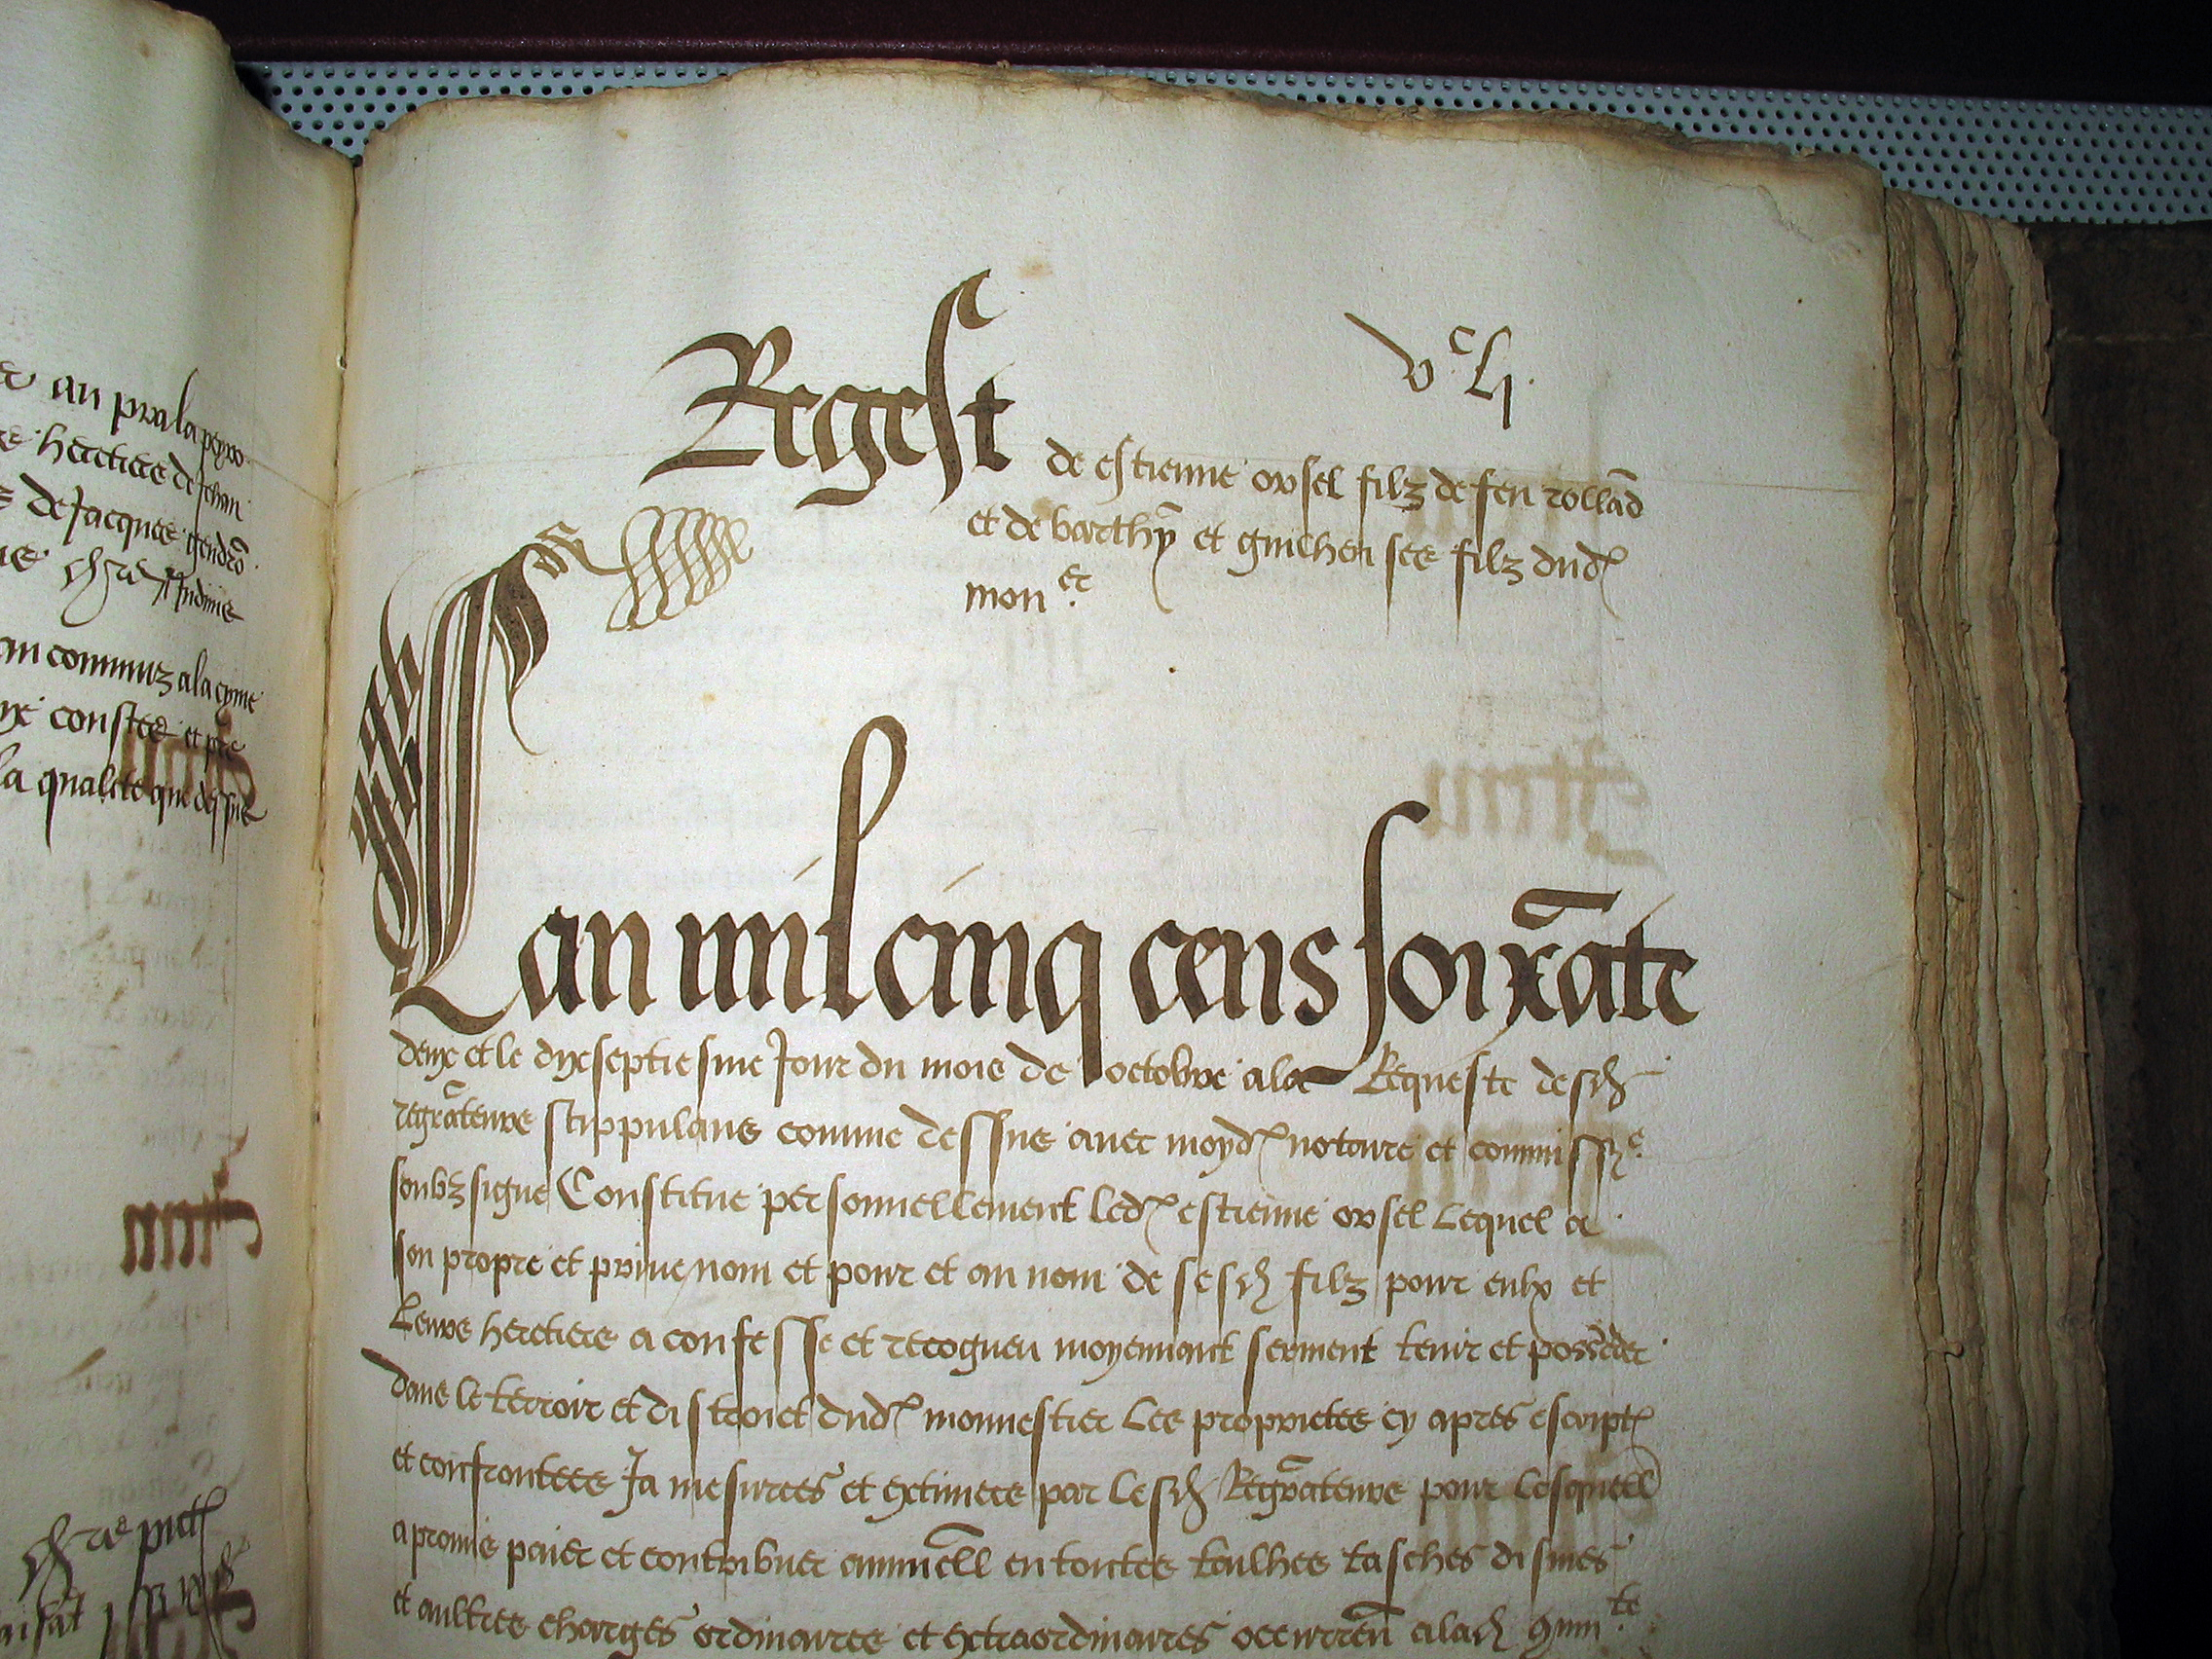 an pra la peyro
heretiers de Jehan
de Jacques gendrō
an commurz a la cyme
constes et pre
la qualite que dessus
Regest
vᶜ lj.
de estienne orsel filz de feu rollād
et de barthȳ et guilhen ses filz dud
monᵉʳ.
Lan mil cinq cens soixāte
deux et le dixseptiesme Jour du mois de octobre a la Requeste desd
regrāteurs stippulans comme dessus avec moyd notaire et commissʳᵉ
soubzsigne Constitue personnellement led estienne orsel Lequel a
son propre et prive nom et pour et au nom de sesd filz pour eulx et
Leurs heretiers a confesse et recogneu moyennant serment tenir et posseder
dans le terroir et distroict dud monnestier Les proprietes cy apres escript
et confrontees Ja mesurees et extimees par Lesd Regrāteurs pour Lesquell
a promis paier et contribuer annuēll en toutes tailhes tasches dismes
et aultres charges ordinaires et extraordinaires occurrēn a lad ꝯmuᵗᵉ.